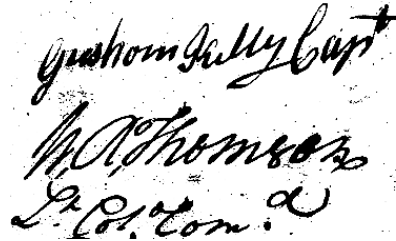 Gershom Kelly Capt
W. A. Thomson
Lt. Col. Com.d